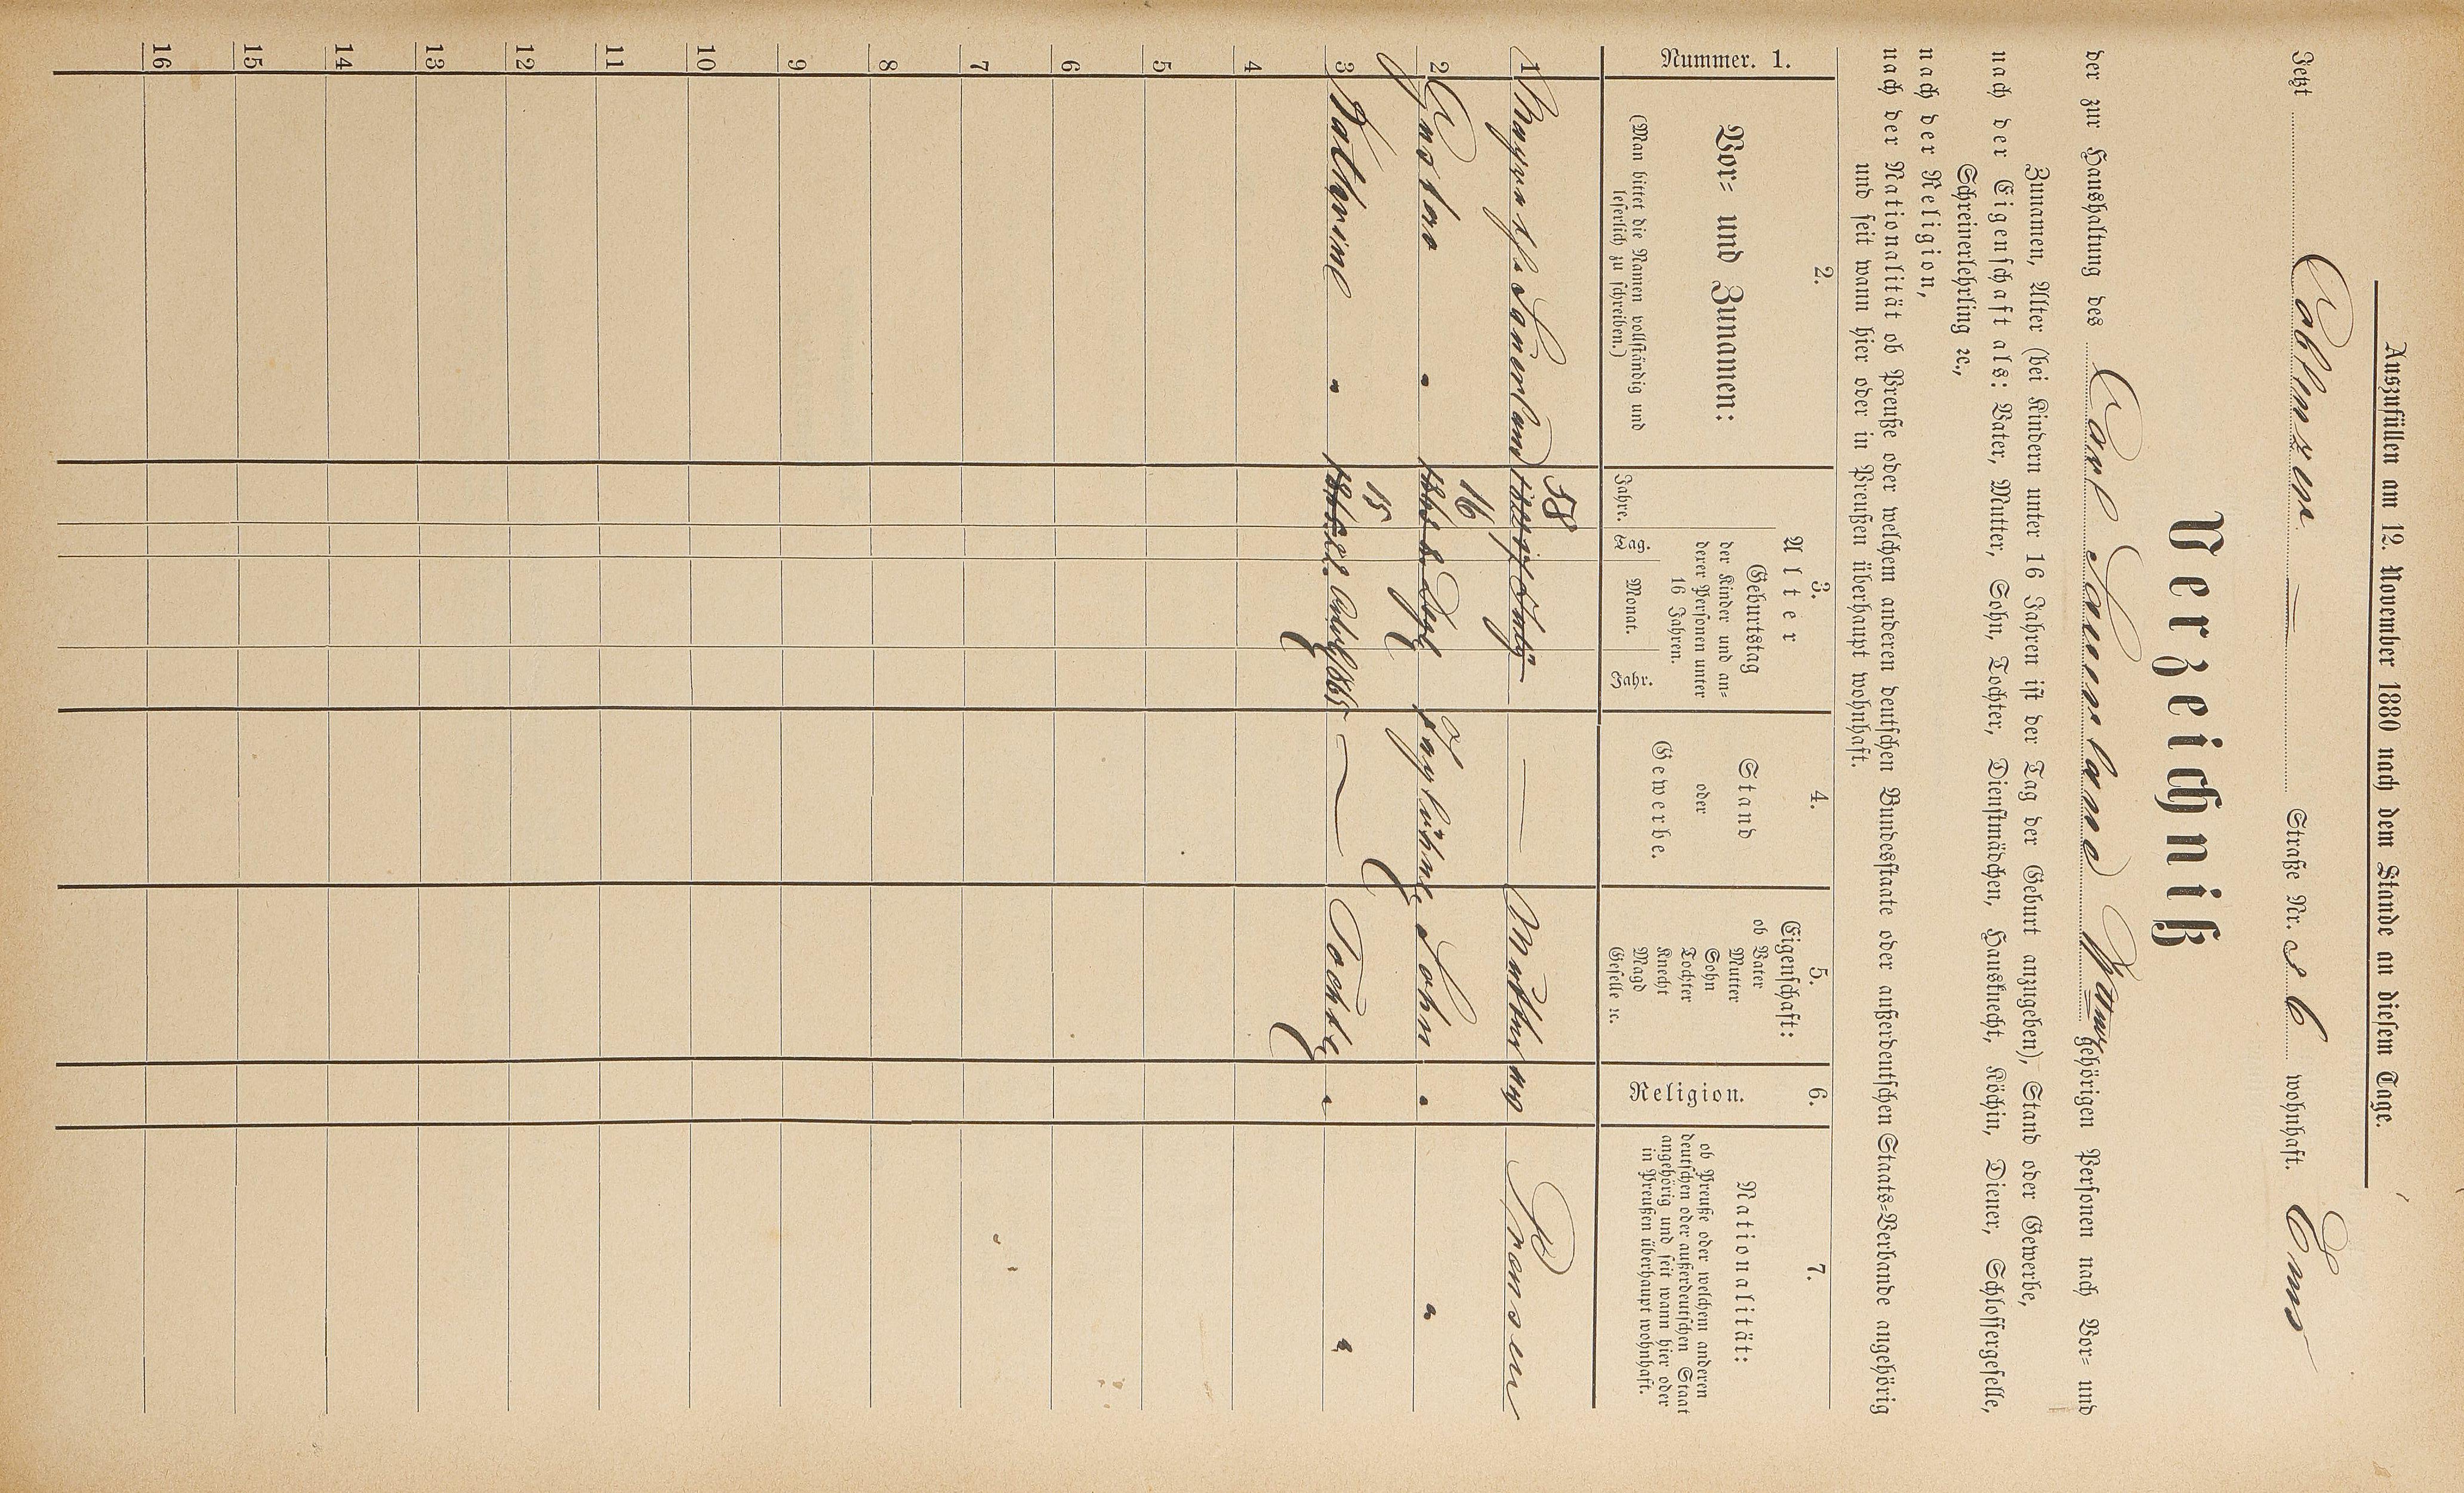 Auszufüllen am 12. November 1880 nach dem Stande an diesem Tage.
Jetzt Coblenzer — Straße Nr. 36 wohnhaft. Ems
Verzeichniß
der zur Haushaltung des Carl Sauerland Wittwe gehörigen Personen nach Vor- und
Zunamen, Alter (bei Kindern unter 16 Jahren ist der Tag der Geburt anzugeben), Stand oder Gewerbe,
nach der Eigenschaft als: Vater, Mutter, Sohn, Tochter, Dienstmädchen, Hausknecht, Köchin, Diener, Schlossergeselle,
Schreinerlehrling ꝛc.,
nach der Religion,
nach der Nationalität ob Preuße oder welchem anderen deutschen Bundesstaate oder außerdeutschen Staats-Verbande angehörig
und seit wann hier oder in Preußen überhaupt wohnhaft.
Nummer. 1.
2.
Vor- und Zunamen:
(Man bittet die Namen vollständig und
leserlich zu schreiben.)
3.
Alter
Geburtstag
der Kinder und an-
derer Personen unter
16 Jahren.
Jahre.
Tag.
Monat.
Jahr.
4.
Stand
oder
Gewerbe.
5.
Eigenschaft:
ob Vater
Mutter
Sohn
Tochter
Knecht
Magd
Geselle ꝛc.
6.
Religion.
7.
Nationalität:
ob Preuße oder welchem anderen
deutschen oder außerdeutschen Staat
angehörig und seit wann hier oder
in Preußen überhaupt wohnhaft.
58
1 Sauerland — Mutter ev Preusen
16
2 Gustav " Taglöhner Sohn " "
15
3 Kathrine " 1865 — Tochter " "
4
5
6
7
8
9
10
11
12
13
14
15
16